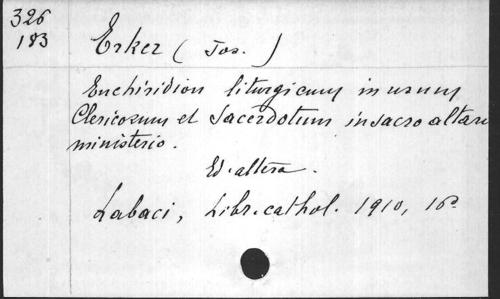 326
183
Erker (Jos.)
Enchiridion liturgicum in usum
Clericorum et Sacerdotum in sacro altari
ministerio.
Ed. altera.
Labaci, Libr. cathol. 1910, 16º